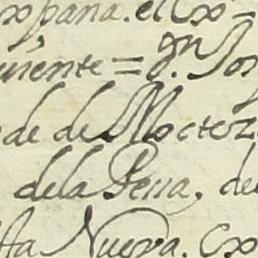 xpana. el Ex=
uiente = Dn. Jos
de de Moctez
dela Pena, de
sta Nueva. Ex